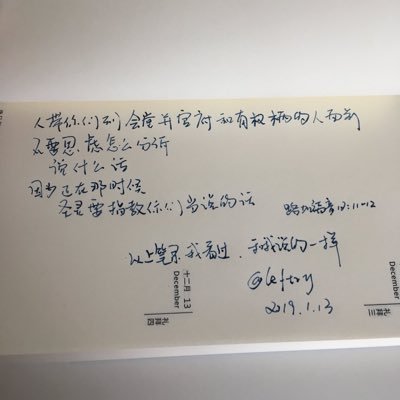 人带你们到会堂并官府和有权柄的人面前
不要思虑怎么分诉
说什么话
因为正在那时候
圣灵要指教你们当说的话 路加福音12:11-12
以上笔录我看过,和我说的一样
2019.1.13
十二月 13
December
礼拜四
December
礼拜三